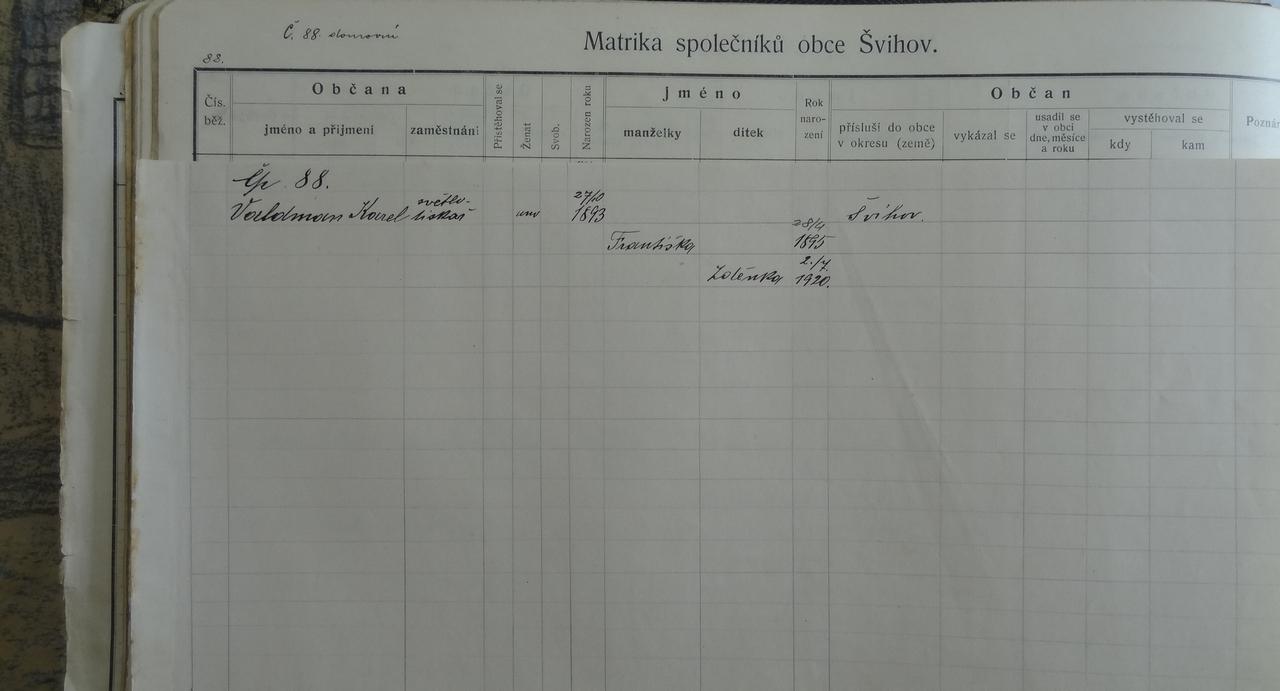 Č. 88 domovní
Matrika společníků obce Švihov.
88.
Čís. běž.
Občana
jméno a přijmení
zaměstnání
Přistěhoval se
Ženat
Svob.
Narozen roku
Jméno
manželky
dítek
Rok naro- zení
Občan
přísluší do obce v okresu (země)
vykázal se
usadil se v obci dne, měsíce a roku
vystěhoval se
kdy
kam
Poznám
Čp. 88.
Valdman Karel světlo- tiskař 27/10 1893 Švihov.
Františka 28/4 1895
Zdénka 2./7. 1920.